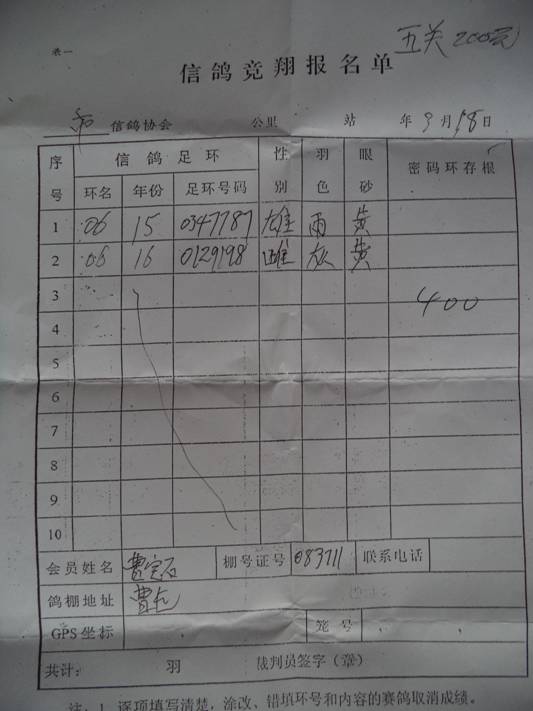 五关 200元
表一
信鸽竞翔报名单
信鸽协会 公里 站 年 9月18日
序号 信鸽足环 性别 羽色 眼砂 密码环存根
环名 年份 足环号码
1 06 15 0347787 雄 雨 黄
2 06 16 0129198 雌 灰 黄
3 400
4
5
6
7
8
9
10
会员姓名 曹宝石 棚号证号 083711 联系电话
鸽棚地址 曹
GPS坐标 笼号
共计: 羽 裁判员签字(章)
注:1、逐项填写清楚,涂改、错填环号和内容的赛鸽取消成绩。